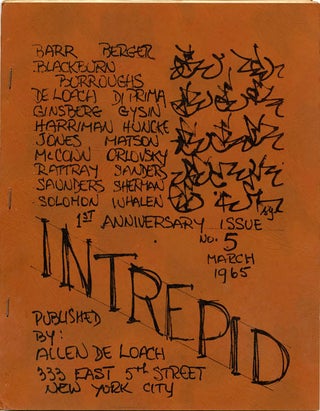 BARR BERGER
BLACKBURN
BURROUGHS
DE LOACH DI PRIMA
GINSBERG GYSIN
HARRIMAN HUNCKE
JONES MATSON
McCONN ORLOVSKY
RATTRAY SANDERS
SAUNDERS SHERMAN
SOLOMON WHALEN
1ST ANNIVERSARY ISSUE
NO. 5
MARCH
1965
INTREPID
PUBLISHED
BY:
ALLEN DE LOACH
333 EAST 5th STREET
NEW YORK CITY